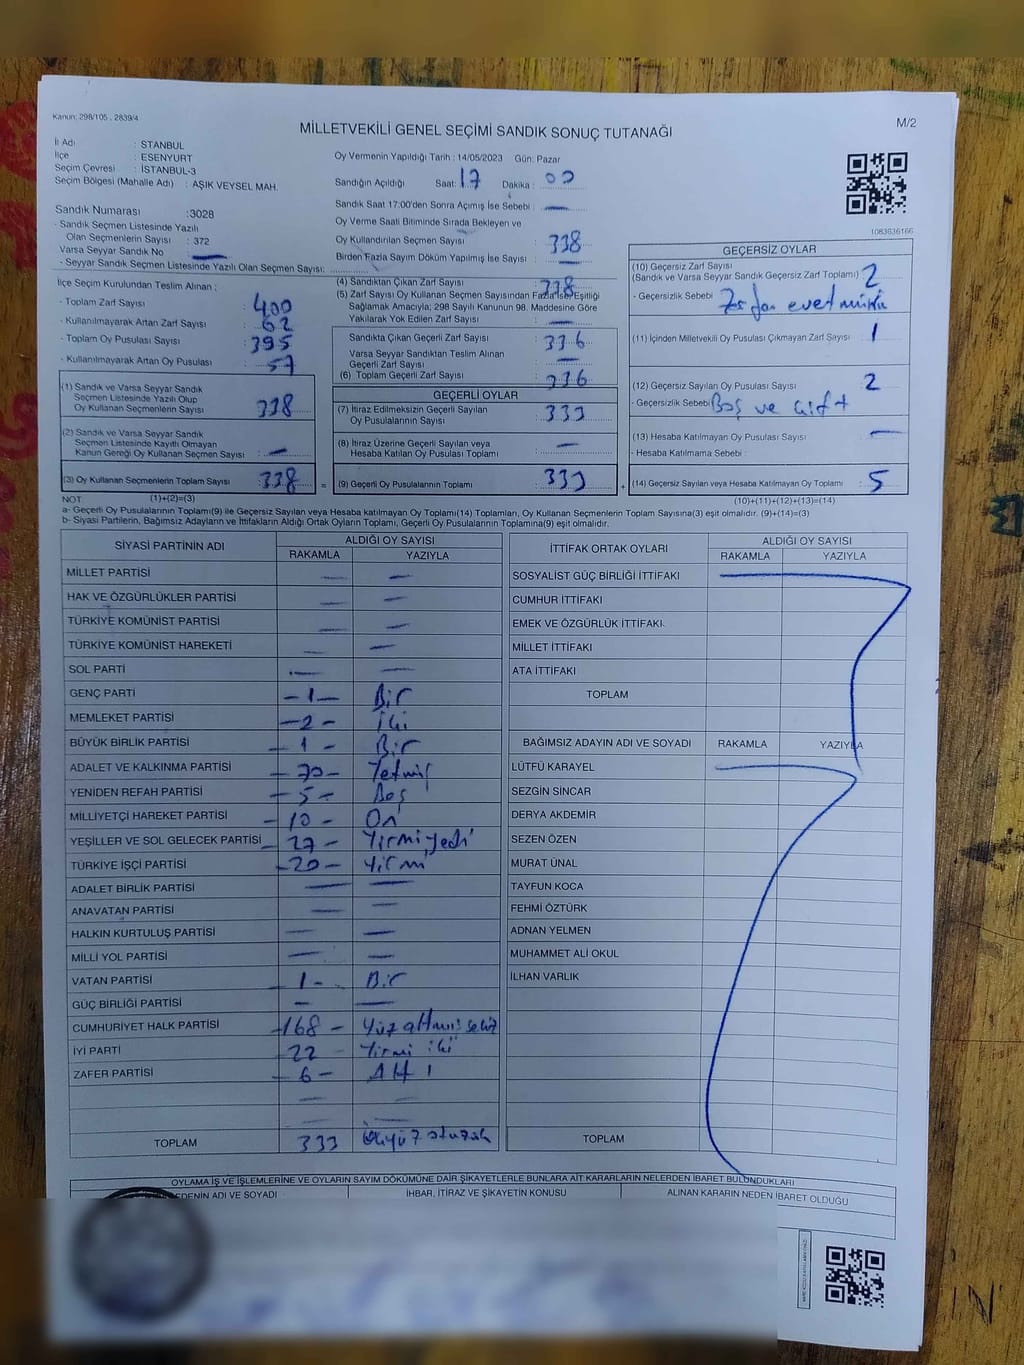 Kanun: 298/105 , 2839/4
M/2
MİLLETVEKİLİ GENEL SEÇİMİ SANDIK SONUÇ TUTANAĞI
İl Adı : STANBUL
İlçe : ESENYURT
Seçim Çevresi : İSTANBUL-3
Seçim Bölgesi (Mahalle Adı) : AŞIK VEYSEL MAH.
Sandık Numarası :3028
- Sandık Seçmen Listesinde Yazılı
Olan Seçmenlerin Sayısı : 372
Varsa Seyyar Sandık No —
- Seyyar Sandık Seçmen Listesinde Yazılı Olan Seçmen Sayısı:
Oy Vermenin Yapıldığı Tarih : 14/05/2023 Gün: Pazar
Sandığın Açıldığı Saat: 17 Dakika : 00
Sandık Saat 17:00'den Sonra Açımış İse Sebebi : —
Oy Verme Saati Bitiminde Sırada Bekleyen ve
Oy Kullandırılan Seçmen Sayısı : 338
Birden Fazla Sayım Döküm Yapılmış İse Sayısı : —
1083636166
İlçe Seçim Kurulundan Teslim Alınan ;
- Toplam Zarf Sayısı : 400
- Kullanılmayarak Artan Zarf Sayısı : 62
- Toplam Oy Pusulası Sayısı : 395
- Kullanılmayarak Artan Oy Pusulası : 57
(1) Sandık ve Varsa Seyyar Sandık
Seçmen Listesinde Yazılı Olup
Oy Kullanan Seçmenlerin Sayısı : 338
(2) Sandık ve Varsa Seyyar Sandık
Seçmen Listesinde Kayıtlı Olmayan
Kanun Gereği Oy Kullanan Seçmen Sayısı : —
(3) Oy Kullanan Seçmenlerin Toplam Sayısı : 338 =
(4) Sandıktan Çıkan Zarf Sayısı : 338
(5) Zarf Sayısı Oy Kullanan Seçmen Sayısından Fazla ise, Eşitliği
Sağlamak Amacıyla; 298 Sayılı Kanunun 98. Maddesine Göre
Yakılarak Yok Edilen Zarf Sayısı : —
Sandıkta Çıkan Geçerli Zarf Sayısı : 336
Varsa Seyyar Sandıktan Teslim Alınan
Geçerli Zarf Sayısı : —
(6) Toplam Geçerli Zarf Sayısı : 336
GEÇERLİ OYLAR
(7) İtiraz Edilmeksizin Geçerli Sayılan
Oy Pusulalarının Sayısı : 333
(8) İtiraz Üzerine Geçerli Sayılan veya
Hesaba Katılan Oy Pusulası Toplamı : —
(9) Geçerli Oy Pusulalarının Toplamı : 333 +
GEÇERSİZ OYLAR
(10) Geçersiz Zarf Sayısı
(Sandık ve Varsa Seyyar Sandık Geçersiz Zarf Toplamı) : 2
- Geçersizlik Sebebi
(11) İçinden Milletvekili Oy Pusulası Çıkmayan Zarf Sayısı : 1
(12) Geçersiz Sayılan Oy Pusulası Sayısı : 2
- Geçersizlik Sebebi : Boş ve çift
(13) Hesaba Katılmayan Oy Pusulası Sayısı : —
- Hesaba Katılmama Sebebi :
(14) Geçersiz Sayılan veya Hesaba Katılmayan Oy Toplamı : 5
NOT (1)+(2)=(3) (10)+(11)+(12)+(13)=(14)
a- Geçerli Oy Pusulalarının Toplamı(9) ile Geçersiz Sayılan veya Hesaba katılmayan Oy Toplamı(14) Toplamları, Oy Kullanan Seçmenlerin Toplam Sayısına(3) eşit olmalıdır. (9)+(14)=(3)
b- Siyasi Partilerin, Bağımsız Adayların ve İttifakların Aldığı Ortak Oyların Toplamı, Geçerli Oy Pusulalarının Toplamına(9) eşit olmalıdır.
SİYASİ PARTİNİN ADI ALDIĞI OY SAYISI
RAKAMLA YAZIYLA
MİLLET PARTİSİ — —
HAK VE ÖZGÜRLÜKLER PARTİSİ — —
TÜRKİYE KOMÜNİST PARTİSİ — —
TÜRKİYE KOMÜNİST HAREKETİ — —
SOL PARTİ — —
GENÇ PARTİ -1- Bir
MEMLEKET PARTİSİ -2- iki
BÜYÜK BİRLİK PARTİSİ -1- Bir
ADALET VE KALKINMA PARTİSİ -70- Yetmiş
YENİDEN REFAH PARTİSİ -5- Beş
MİLLİYETÇİ HAREKET PARTİSİ -10- On
YEŞİLLER VE SOL GELECEK PARTİSİ -27- Yirmi yedi
TÜRKİYE İŞÇİ PARTİSİ -20- Yirmi
ADALET BİRLİK PARTİSİ — —
ANAVATAN PARTİSİ — —
HALKIN KURTULUŞ PARTİSİ — —
MİLLİ YOL PARTİSİ — —
VATAN PARTİSİ -1- Bir
GÜÇ BİRLİĞİ PARTİSİ — —
CUMHURİYET HALK PARTİSİ -168- Yüz altmış sekiz
İYİ PARTİ -22- Yirmi iki
ZAFER PARTİSİ -6- Altı
— —
TOPLAM 333
İTTİFAK ORTAK OYLARI ALDIĞI OY SAYISI
RAKAMLA YAZIYLA
SOSYALİST GÜÇ BİRLİĞİ İTTİFAKI
CUMHUR İTTİFAKI
EMEK VE ÖZGÜRLÜK İTTİFAKI
MİLLET İTTİFAKI
ATA İTTİFAKI
TOPLAM
BAĞIMSIZ ADAYIN ADI VE SOYADI RAKAMLA YAZIYLA
LÜTFÜ KARAYEL
SEZGİN SİNCAR
DERYA AKDEMİR
SEZEN ÖZEN
MURAT ÜNAL
TAYFUN KOCA
FEHMİ ÖZTÜRK
ADNAN YELMEN
MUHAMMET ALİ OKUL
İLHAN VARLIK
TOPLAM
OYLAMA İŞ VE İŞLEMLERİNE VE OYLARIN SAYIM DÖKÜMÜNE DAİR ŞİKAYETLERLE BUNLARA AİT KARARLARIN NELERDEN İBARET BULUNDUKLARI
EDENİN ADI VE SOYADI İHBAR, İTİRAZ VE ŞİKAYETİN KONUSU ALINAN KARARIN NEDEN İBARET OLDUĞU